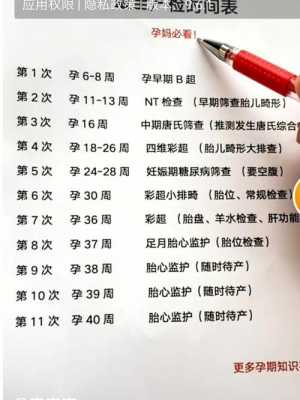 应用权限 | 隐私政策
检时间表
孕妈必看!
第1次 孕6-8周 孕早期B超
第2次 孕11-13周 NT检查（早期筛查胎儿畸形）
第3次 孕16周 中期唐氏筛查（推测发生唐氏综合
第4次 孕18-26周 四维彩超（胎儿畸形大排查）
第5次 孕24-28周 妊娠期糖尿病筛查（要空腹）
第6次 孕30周 彩超小排畸（胎位、常规检查）
第7次 孕36周 彩超（胎盘、羊水检查、肝功能
第8次 孕37周 足月胎心监护（胎位检查）
第9次 孕38周 胎心监护（随时待产）
第10次 孕39周 胎心监护（随时待产）
第11次 孕40周 胎心监护（随时待产）
更多孕期知识